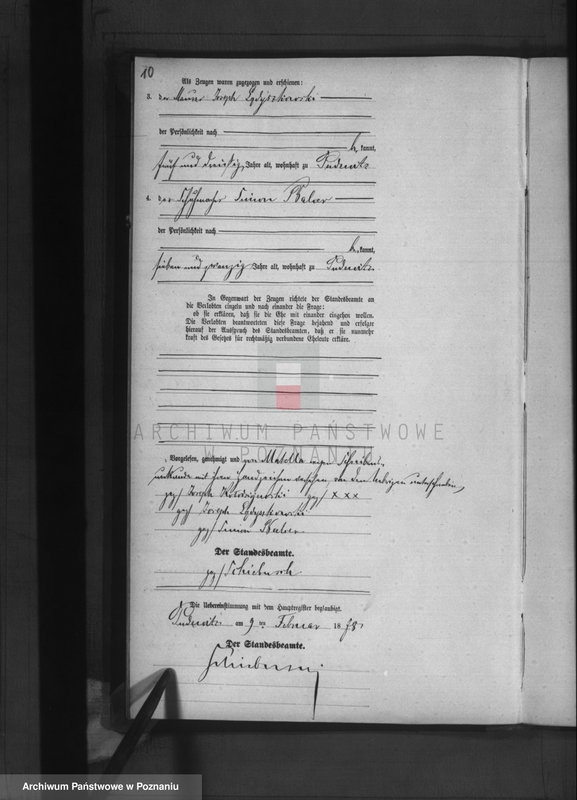 10
Als Zeugen waren zugezogen und erschienen:
3. der Maurer Joseph
der Persönlichkeit nach
bekannt,
fünf und dreißig Jahre alt, wohnhaft zu Pudewitz
4. der Schuhmacher Simon
der Persönlichkeit nach
bekannt,
sieben und zwanzig Jahre alt, wohnhaft zu Pudewitz.
In Gegenwart der Zeugen richtete der Standesbeamte an
die Verlobten einzeln und nach einander die Frage:
ob sie erklären, daß sie die Ehe mit einander eingehen wollen.
Die Verlobten beantworteten diese Frage bejahend und erfolgte
hierauf der Ausspruch des Standesbeamten, daß er sie nunmehr
kraft des Gesetzes für rechtmäßig verbundene Eheleute erkläre.
ARCHIWUM PAŃSTWOWE
W POZNANIU
Vorgelesen, genehmigt und von wegen Schreibens
unkunde mit ihrem Handzeichen versehen, von den Uebrigen unterschrieben,
gez/ Joseph gez/ x x x
gez/ Joseph
gez/ Simon
Der Standesbeamte.
gez/
Die Uebereinstimmung mit dem Hauptregister beglaubigt.
Pudewitz am 9 ten Februar 1878
Der Standesbeamte.
Archiwum Państwowe w Poznaniu